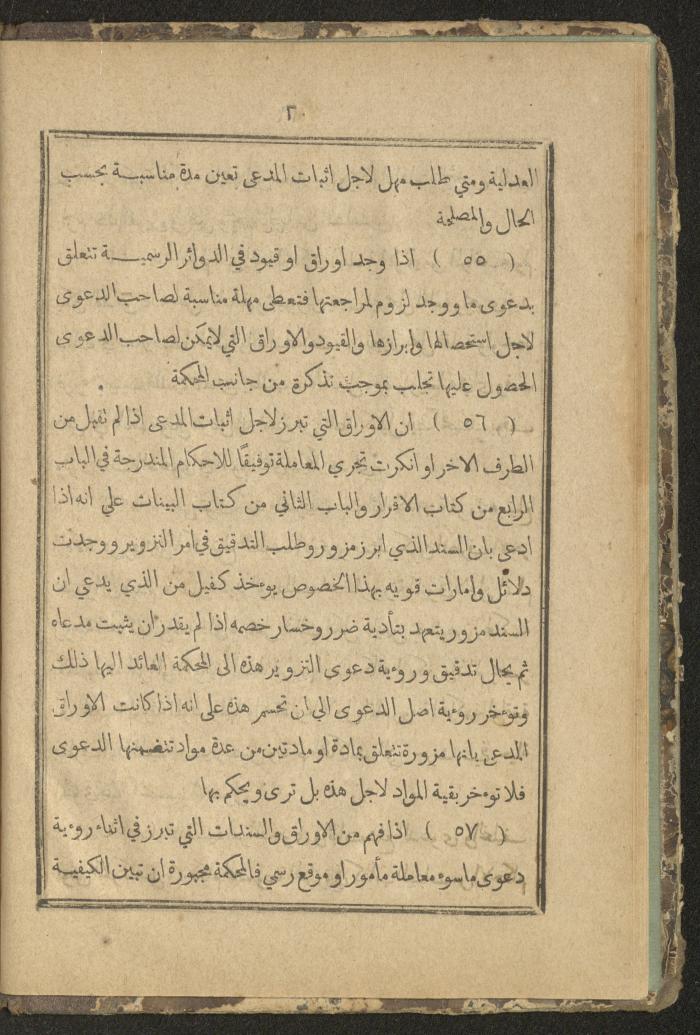 ٢٠
العدلية ومتى طلب مهل لاجل اثبات المدعى تعين مدة مناسبة بحسب
الحال والمصلحة
( ٥٥ ) اذا وجد اوراق او قيود في الدوائر الرسمية تتعلق
بدعوى ما ووجد لزوم لمراجعتها فتعطى مهلة مناسبة لصاحب الدعوى
لاجل استحصالها وابرازها والقيود والاوراق التي لايمكن لصاحب الدعوى
الحصول عليها تجلب بموجب تذكرة من جانب المحكمة
( ٥٦ ) ان الاوراق التي تبرز لاجل اثبات المدعى اذا لم تقبل من
الطرف الاخر او انكرت تجري المعاملة توفيقًا للاحكام المندرجة في الباب
الرابع من كتاب الاقرار والباب الثاني من كتاب البينات على انه اذا
ادعى بان السند الذي ابرز مزور وطلب التدقيق في امر التزوير ووجدت
دلائل وامارات قويه بهذا الخصوص يوءخذ كفيل من الذي يدعي ان
السند مزور يتعهد بتأدية ضرر وخسار خصمه اذا لم يقدر ان يثبت مدعاه
ثم يحال تدقيق وروءية دعوى التزوير هذه الى المحكمة العائد اليها ذلك
وتوءخر روءية اصل الدعوى الى ان تحسم هذه على انه اذا كانت الاوراق
المدعى بانها مزورة تتعلق بمادة او مادتين من عدة مواد تتضمنها الدعوى
فلا توءخر بقية المواد لاجل هذه بل ترى ويحكم بها
( ٥٧ ) اذا فهم من الاوراق والسندات التي تبرز في اثناء روءية
دعوى ما سوء معاملة مأمور او موقع رسمي فالمحكمة مجبورة ان تبين الكيفية